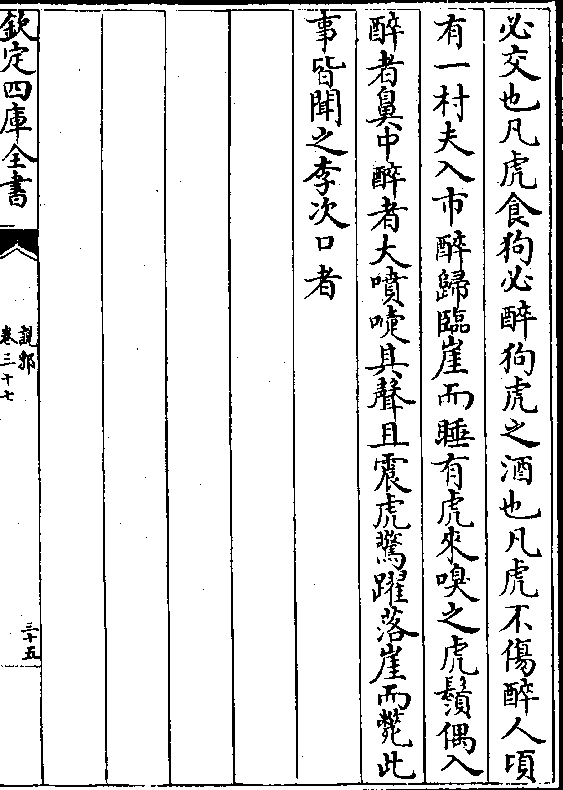 必交也凡虎食狗必醉狗虎之酒也凡虎不傷醉人頃
有一村夫入市醉歸臨崖而睡有虎來嗅之虎鬚偶入
醉者鼻中醉者大噴嚏其聲且震虎驚躍落崖而斃此
事皆聞之李次口者
欽定四庫全書
說郛
卷三十七
三十五